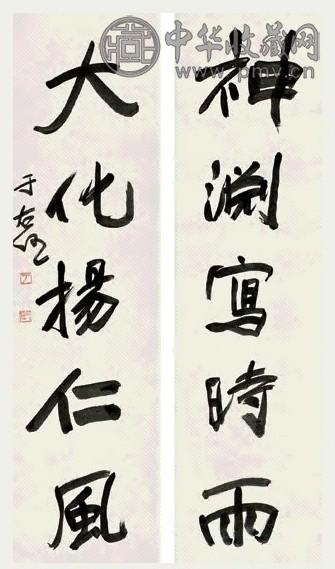 神淵寫時雨
大化揚仁風
于右任
中华收藏网
www.pmv.cn